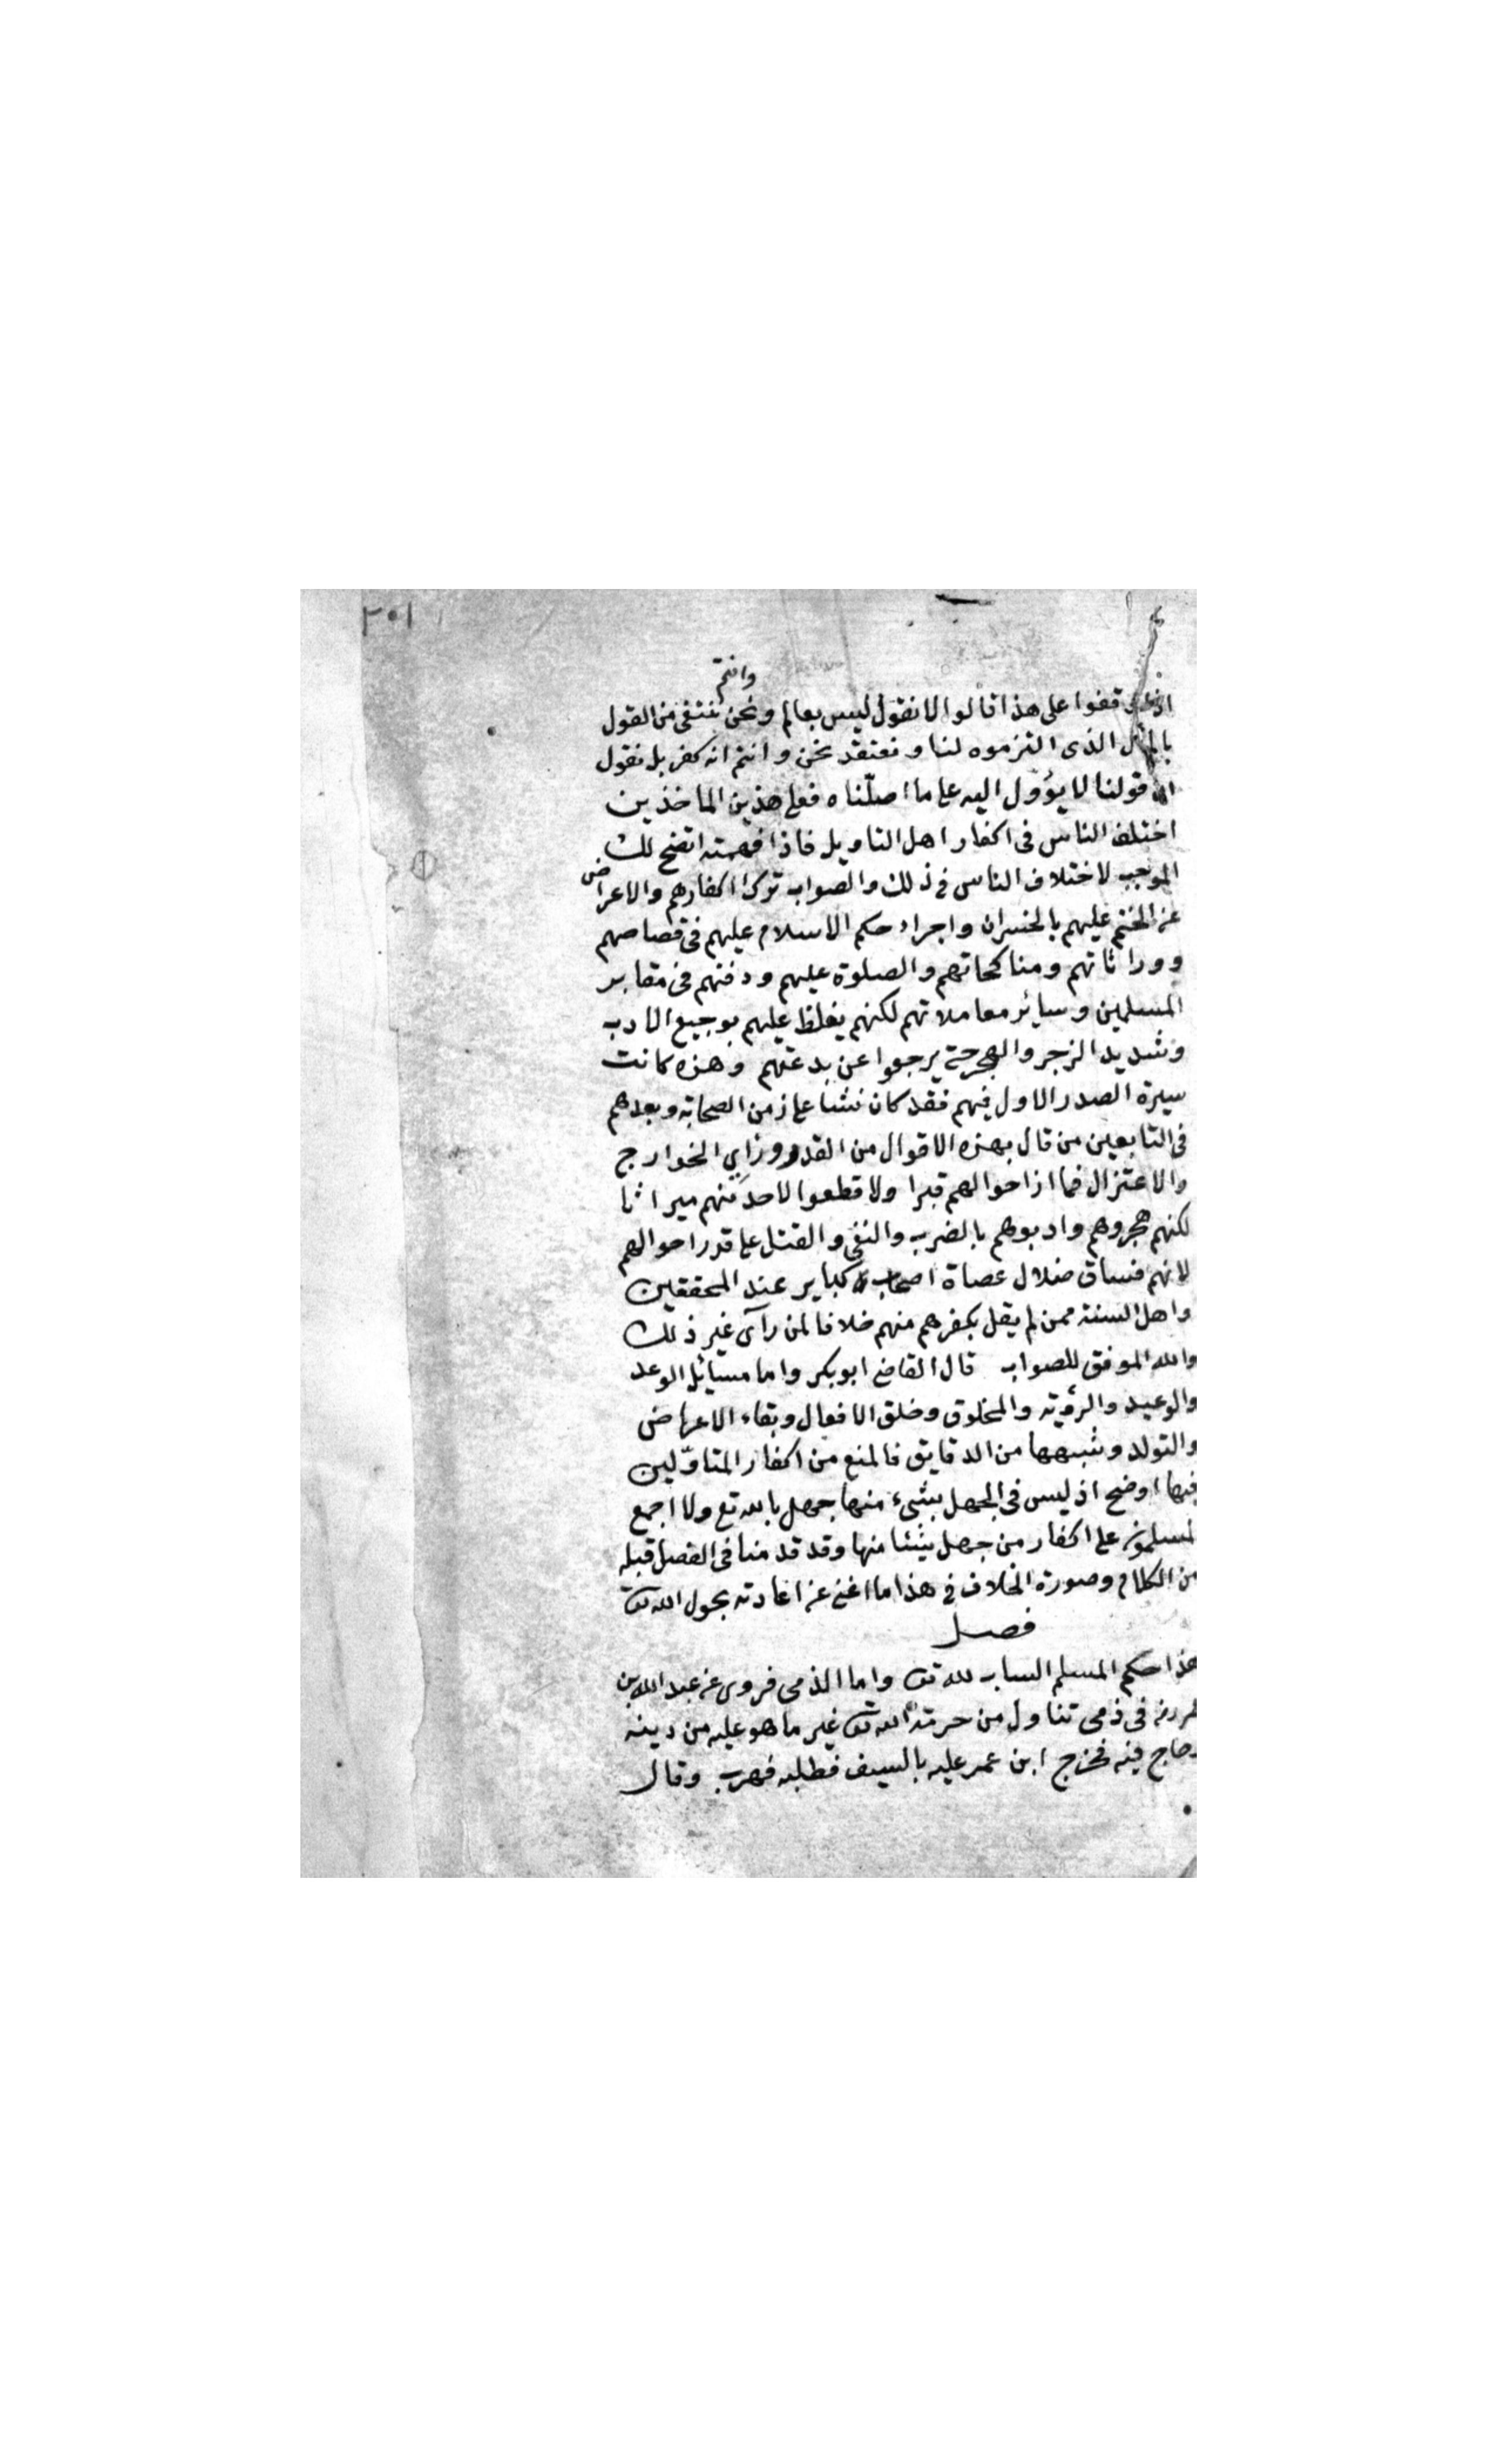 ٣٠١
وانتم
اذا وقفوا على هذا قالوا لا نقول ليس بعالم ونحن ننتفى من القول
بالمآل الذى التزموه لنا ونعتقد نحن وانتم انه كفر بل نقول
ان قولنا لا يؤول اليه على ما اصلّناه فعلى هذين الماخذين
اختلف الناس فى اكفار اهل التاويل فاذا فهمته اتضح لك
الموجب لاختلاف الناس فى ذلك والصواب ترك اكفارهم والاعراض
عن الختم عليهم بالخسران واجراء حكم الاسلام عليهم فى قصاصهم
ووراثاتهم ومناكحاتهم والصلوة عليهم ودفنهم فى مقابر
المسلمين وسائر معاملاتهم لكنهم يغلظ عليهم بوجيع الادب
وشديد الزجر والهجر حتى يرجعوا عن بدعتهم وهذه كانت
سيرة الصدر الاول فيهم فقد كان نشأ على زمن الصحابة وبعدهم
فى التابعين من قال بهذه الاقوال من القدر وراى الخوارج
والاعتزال فما ازاحوا لهم قبرا ولا قطعوا لاحد منهم ميراثا
لكنهم هجروهم وادبوهم بالضرب والنفى والقتل على قدر احوالهم
لانهم فساق ضلال عصاة اصحاب كباير عند المحققين
واهل السنة ممن لم يقل بكفرهم منهم خلافا لمن رآى غير ذلك
والله الموفق للصواب قال القاضى ابو بكر واما مسائل الوعد
والوعيد والرؤية والمخلوق وخلق الافعال وبقاء الاعراض
والتولد وشبهها من الدقايق فالمنع من اكفار المتاوّلين
فيها اوضح اذ ليس فى الجهل بشىء منها جهل بالله تع ولا اجمع
المسلمون على اكفار من جهل شيئا منها وقد قدمنا فى الفصل قبله
من الكلام وصورة الخلاف فى هذا ما اغنى عن اعادته بحول الله تعا
فصل
هذا حكم المسلم الساب لله تعا واما الذمى فروى عن عبد الله بن
عمر رضى فى ذمى تناول من حرمة الله تعا غير ما هو عليه من دينه
وحاج فيه فخرج ابن عمر عليه بالسيف فطلبه فهرب وقال